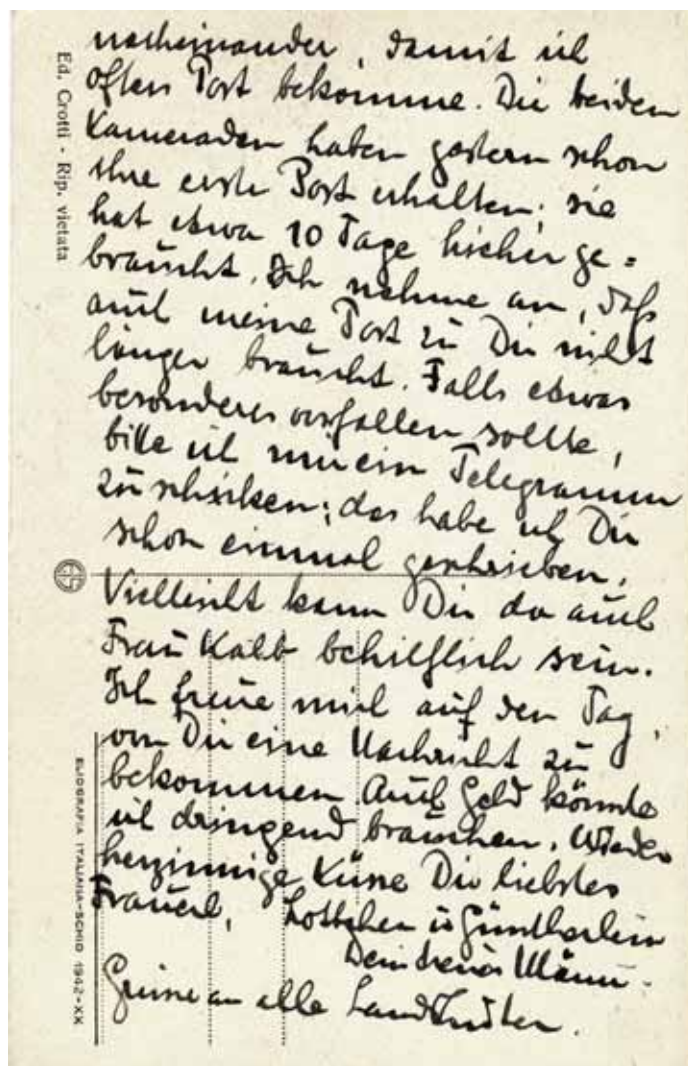 nacheinander, damit ich
öfters Post bekomme. Die beiden
Kameraden haben gestern schon
ihre erste Post erhalten; sie
hat etwa 10 Tage hieher ge=
braucht. Ich nehme an, daß
auch meine Post zu Dir nicht
länger braucht. Falls etwas
besonderes vorfallen sollte,
bitte ich mir ein Telegramm
zu schicken; das habe ich Dir
schon einmal geschrieben.
Vielleicht kann Dir da auch
Frau Kalb behilflich sein.
Ich freue mich auf den Tag,
von Dir eine Nachricht zu
bekommen. Auch Geld könnte
ich dringend brauchen. Wieder
herzinnige Küsse Dir liebstes
Frauerl, Lottchen u Güntherlein
Dein treuer Mann.
Grüsse an alle
Ed. Crotti - Rip. vietata
ELIOGRAFIA ITALIANA-SCHIO 1942-XX